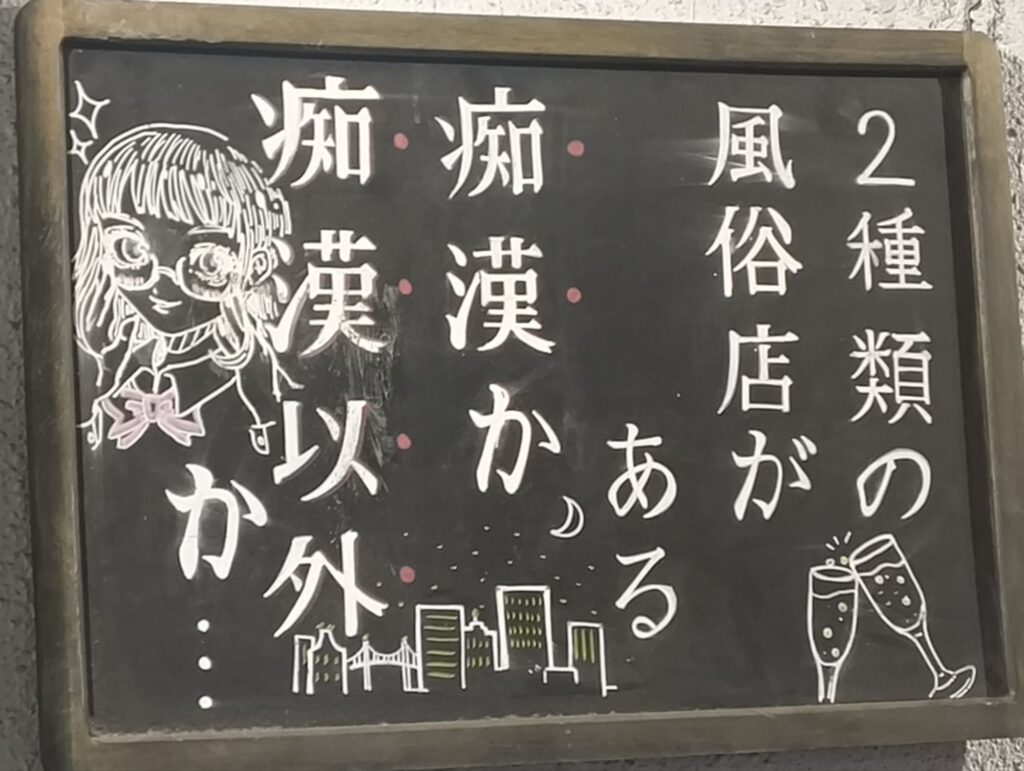 2種類の
風俗店が
ある
痴漢か、
痴漢以外
か…